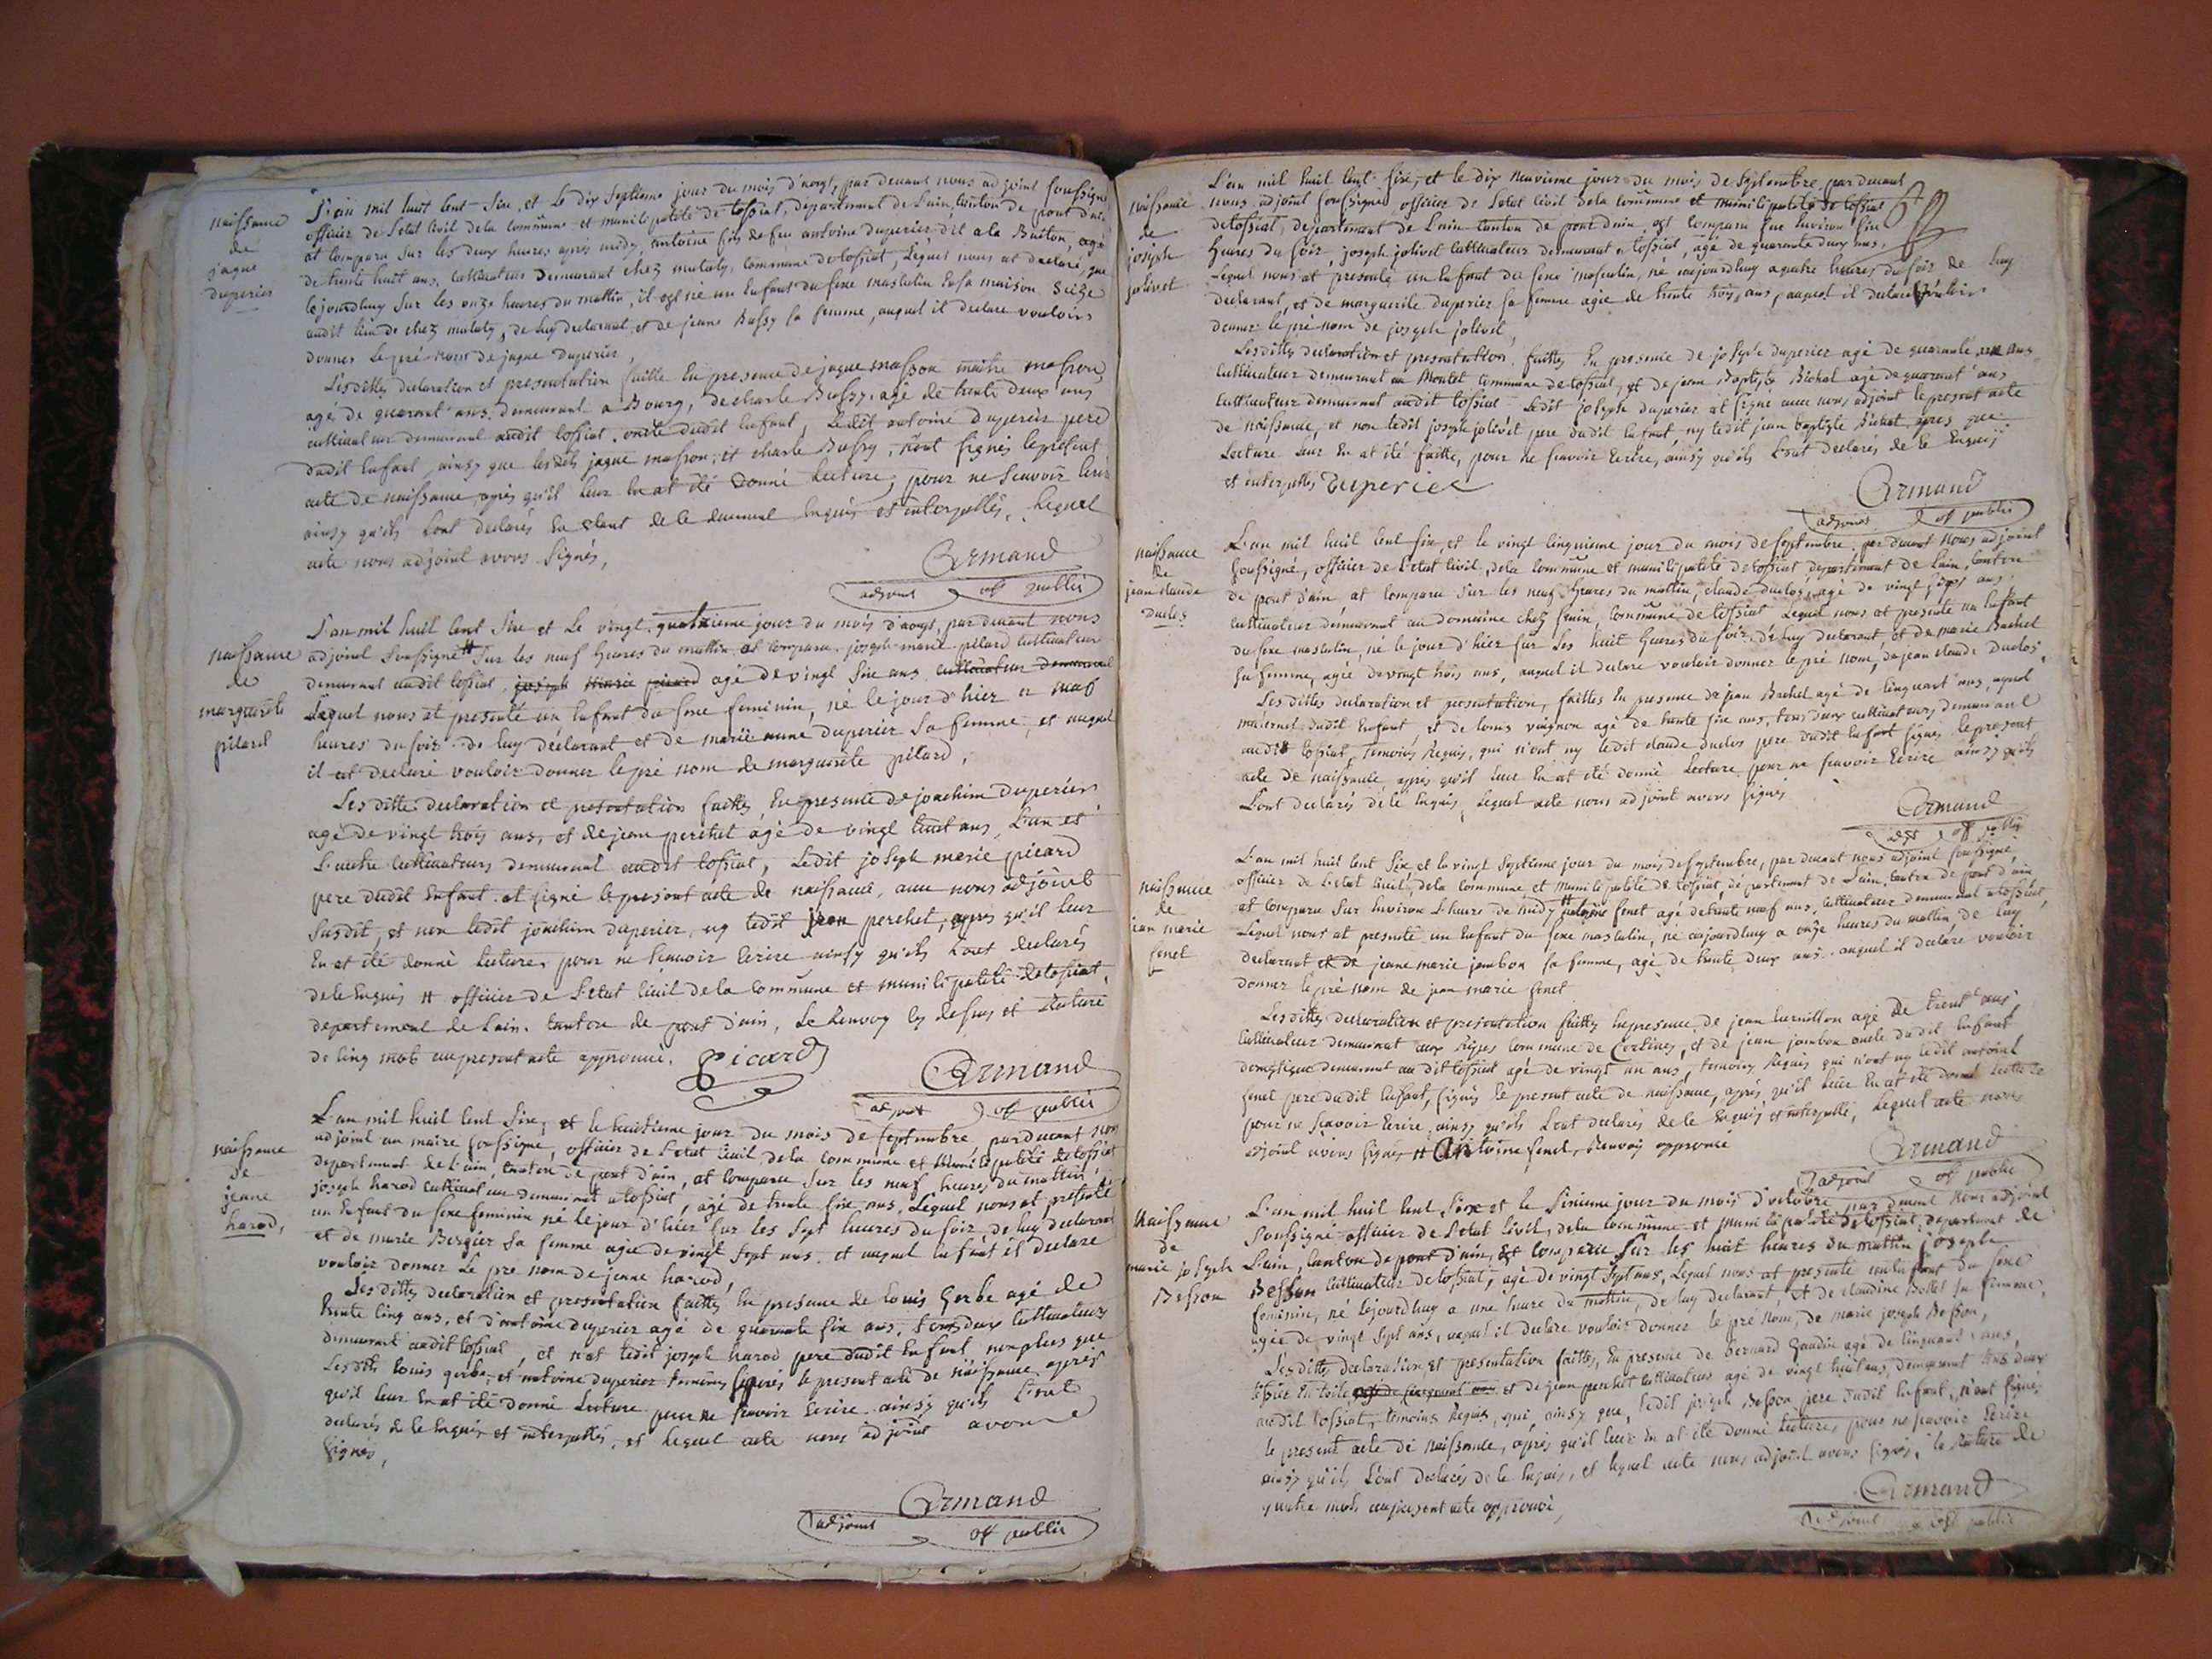 naissance
de
jaque
duperier
L'an mil huit cent six, et le dix septieme jour du mois d'aougt, par devant nous adjoint soussigné
officier de l'etat civil de la commune et municipalité de tossiat, département de l'ain, canton de pont d'ain
at comparu sur les deux heures après midy, antoine fils de feu antoine duperier dit a la Buiton, agé
de trente huit ans, cultivateur demeurant chez mutaly, commune de tossiat, Lequel nous at declaré, que
cejourdhuy sur les onze heures du mattin, il est né un enfant du sexe masculin en sa maison size
audit lieu de chez mutaly, de luy declarant et de jeane Bussy sa femme, auquel il declare vouloir
donner le pré nom de jaque duperier,
Lesdittes declaration et presentation faitte en presence de jaque masson maitre masson,
agé de quarant ans, demeurant a Bourg, de charle Bussy, agé de trente deux ans
cultivateur demeurant audit tossiat, oncle dudit enfant, Ledit antoine duperier pere
dudit enfant, ainsy que lesdits jaque masson, et charle Bussy, n'ont signés le présent
acte de naissance, après qu'il leur en at été donné Lecture, pour ne scavoir lire
ainsy qu'ils l'ont declarés en etant de le duement enquis et interpellés, Lequel
acte nous adjoint avons signés,
Armand
adjoint off public
naissance
de
margueritte
picard
L'an mil huit cent six et le vingt quatrieme jour du mois d'aougt, par devant nous
adjoint soussigné # sur les neuf heures du mattin, at comparu joseph marie picard cultivateur
demeurant audit tossiat, joseph marie picard agé de vingt six ans cultivateur demeurant
Lequel nous at presenté un enfant du sexe feminin, né le jour d'hier a neuf
heures du soir, de luy déclarant et de marie anne duperier sa femme, et auquel
il at declaré vouloir donner le pré nom de marguerite picard,
Lesditte declaration et presentation faittes, en presence de joachim duperier
agé de vingt trois ans, et de jean perchet agé de vingt huit ans, L'un et
L'autre cultivateurs demeurant audit tossiat, Ledit joseph marie picard
pere dudit enfant at signé le present acte de naissance, avec nous adjoint
susdit, et non ledit joachim duperier, ny ledit jean perchet, apres qu'il leur
en at été donné Lecture, pour ne scavoir Ecrire ainsy qu'ils l'ont declarés
de le enquis # officier de l'etat civil de la commune et municipalité de tossiat,
departement de l'ain, canton de pont d'ain, Le Renvoy cy dessus et Rature
de cinq mots au present acte approuvé. Picard
Armand
adjoint off public
naissance
de
jeane
harod,
L'an mil huit cent six, et le huitieme jour du mois de septembre, pardevant nous
adjoint au maire soussigné, officier de l'etat civil de la commune et municipalité de tossiat
departement de l'ain, canton de pont d'ain, at comparu sur les neuf heures du mattin,
joseph harod cultivateur demeurant a tossiat, agé de trente six ans, Lequel nous at presenté
un enfant du sexe feminin né le jour d'hier sur les sept heures du soir, de luy declarant
et de marie Bergier sa femme agée de vingt sept ans, et auquel enfant il declare
vouloir donner le pre nom de jeane harod,
Lesdittes declaration et presentation faittes, en presence de Louis Gerbe agé de
trente cinq ans, et d'antoine duperier agé de quarante six ans, tous deux cultivateurs
demeurant audit tossiat, et n'at ledit joseph harod pere dudit enfant non plus que
Lesdits Louis gerbe, et antoine duperier temoins signés le present acte de naissance après
qu'il leur en at été donné Lecture pour ne scavoir Ecrire ainsy qu'ils l'ont
declarés de le enquis et interpellés, et lequel acte nous adjoint avons
signés,
Armand
adjoint off public
naissance
de
joseph
jolivet
L'an mil huit cent six, et le dix neuvieme jour du mois de septembre, par devant
nous adjoint soussigné officier de l'etat civil de la commune et municipalité de tossiat
de tossiat, departement de l'ain canton de pont d'ain, est comparu sur environ six
heures du soir, joseph jolivet cultivateur demeurant a tossiat, agé de quarante deux ans,
Lequel nous at presenté un enfant du sexe masculin, né aujourdhuy a quatre heures du soir de luy
declarant, et de marguerite duperier sa femme agée de trente trois ans, auquel il declare vouloir
donner le pré nom de joseph jolivet,
Lesdittes declaration et presentation faittes en presence de joseph duperier agé de quarante un ans
cultivateur demeurant au Montet commune de tossiat, et de jean Baptiste Bichat agé de quarant ans
cultivateur demeurant audit tossiat Ledit joseph duperier at signé avec nous adjoint le present acte
de naissance, et non ledit joseph jolivet pere dudit enfant, ny ledit jean baptiste Bichat, apres que
Lecture leur en at été faitte, pour ne scavoir Ecrire, ainsy qu'ils l'ont declarés de le Enquis
et interpelles Duperier
Armand
adjoint off public
naissance
de
jean claude
duclos
L'an mil huit cent six, et le vingt cinquieme jour du mois de septembre, par devant nous adjoint
soussigné, officier de l'etat civil, de la commune et municipalité de tossiat, departement de l'ain, canton
de pont d'ain at comparu sur les neuf heures du mattin, claude duclos, agé de vingt sept ans,
cultivateur demeurant au domaine chez fruin, commune de tossiat Lequel nous at presenté un enfant
du sexe masculin, né le jour d'hier sur les huit heures du soir de luy declarant, et de marie Bachel
sa femme, agée de vingt trois ans, auquel il declare vouloir donner le pré nom, de jean claude Duclos,
Lesdittes declaration et presentation, faittes en presence de jean Bachel agé de cinquant ans, ayeul
maternel dudit enfant, et de Louis vuignon agé de trente six ans, tous deux cultivateurs demeurant
audit tossiat, temoins Requis, qui n'ont ny ledit claude duclos pere dudit enfant signés le present
acte de naissance apres qu'il leur en at été donné Lecture pour ne scavoir Ecrire ainsy qu'ils
L'ont declarés de le enquis, Lequel acte nous adjoint avons signés
Armand
adjt off public
naissance
de
jean marie
fenet
L'an mil huit cent six, et le vingt septieme jour du mois de septembre, par devant nous adjoint soussigné,
officier de l'etat civil, de la commune et municipalité de tossiat, departement de l'ain, canton de pont d'ain
at comparu sur environ l'heure de midy # fenet agé de trente neuf ans, cultivateur demeurant a tossiat,
Lequel nous at presenté un enfant du sexe masculin, né aujourdhuy a onze heures du mattin de luy
declarant et de jeane marie jambon sa femme, agé de trente deux ans, auquel il declare vouloir
donner le pré nom de jean marie fenet
Lesdittes declaration et presentation faittes en presence, de jean agé de trent'ans,
cultivateur demeurant aux Ripes commune de Certines, et de jean jambon oncle dudit enfant
domestique demeurant audit tossiat agé de vingt un ans, temoins Requis qui n'ont ny ledit antoine
fenet pere dudit enfant, signés le present acte de naissance, après qu'il leur en at été donné Lecture
pour ne scavoir Ecrire, ainsy qu'ils l'ont declarés de le Enquis et interpellé, Lequel acte nous
adjoint avons signés # antoine fenet, Renvoy approuvé
Armand
adjoint off public
Naissance
de
marie joseph
Besson
L'an mil huit cent six et le sixieme jour du mois d'octobre, par devant nous adjoint
soussigné officier de l'etat civil, de la commune et municipalité de tossiat, departement de
L'ain, canton de pont d'ain, est comparu sur les huit heures du mattin joseph
Besson cultivateur de tossiat, agé de vingt sept ans, Lequel nous at presenté un enfant du sexe
feminin, né cejourdhuy a une heure du mattin, de luy declarant et de claudine Bollet sa femme,
agée de vingt sept ans, auquel il declare vouloir donner le pré nom, de marie joseph Besson,
Lesdittes declaration et presentation faittes, en presence de bernard Gaudin agé de cinquant ans,
tissier en toile et de jean perchet cultivateur agé de vingt huit ans, demeurant tous deux
audit tossiat, temoins Requis, qui ainsy que ledit joseph Besson pere dudit enfant, n'ont signés
le present acte de naissance, après qu'il leur en at été donné Lecture, pour ne scavoir Ecrire
ainsy qu'ils l'ont declarés de le enquis, et lequel acte nous adjoint avons signés, la Rature de
quatre mots au present acte approuvé,
Armand
adjoint off public